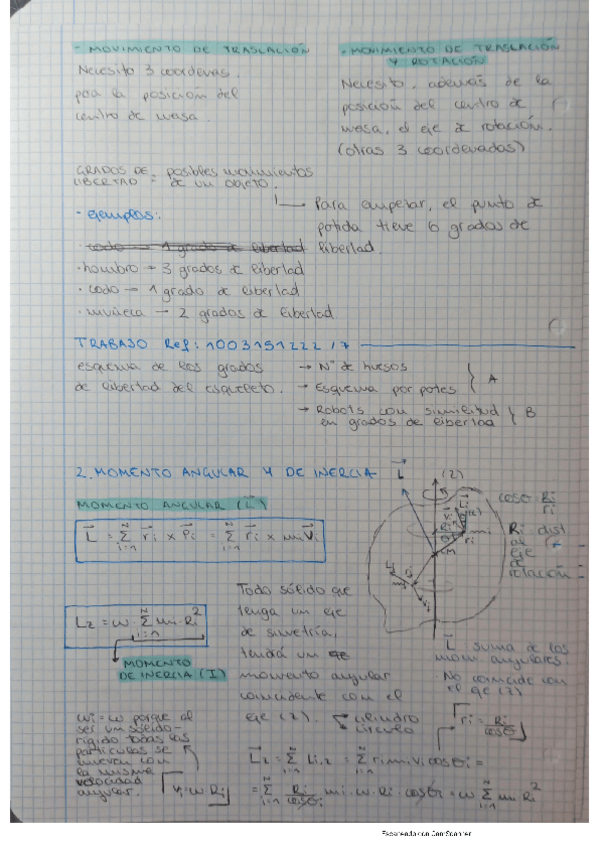 - MOVIMIENTO DE TRASLACIÓN
Necesito 3 coordenas.
para la posición del
centro de masa.
- MOVIMIENTO DE TRASLACIÓN
Y ROTACIÓN
Necesito, además de la
posición del centro de
masa, el eje de rotación.
(otras 3 coordenadas)
GRADOS DE LIBERTAD = posibles movimientos
de un objeto.
Para empezar, el punto de
partida tiene 6 grados de
libertad.
· ejemplos:
· codo → 1 grado de libertad
· hombro → 3 grados de libertad
· codo → 1 grado de libertad
· muñeca → 2 grados de libertad
TRABAJO Ref: 1003151222 / 7
esquema de los grados
de libertad del esqueleto.
→ Nº de huesos
→ Esquema por partes
} A
→ Robots con similitud
en grados de libertad
} B
2. MOMENTO ANGULAR Y DE INERCIA
MOMENTO ANGULAR (L)
L = Σ ri x Pi = Σ ri x mi Vi
Lz = ω · Σ mi · Ri²
MOMENTO
DE INERCIA (I)
Todo sólido que
tenga un eje
de simetría,
tendrá un
momento angular
coincidente con el
eje (z).
cilindro
círculo
L
(z)
cosθ = Ri/ri
Ri: dist
al
eje
de
rotación
L suma de los
mom. angulares.
No coincide con
el eje (z)
ωi = ω porque al
ser un sólido
rígido todas las
partículas se
mueven con
la misma
velocidad
angular.
vi = ω Ri
ri = Ri/cosθ
Lz = Σ Li,z = Σ ri mi · vi cosθi =
= Σ Ri/cosθi · mi · ω · Ri · cosθi = ω Σ mi Ri²
Escaneado con CamScanner